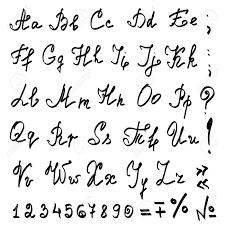 Aa Bb Cc Dd Ee ;
Ff Gg Hh Ii Jj Kk ;
Ll Mm Nn Oo Pp ?
Qq Rr Ss Tt Uu !
Vv Ww Xx Yy Zz »
1 2 3 4 5 6 7 8 9 0 = + % №